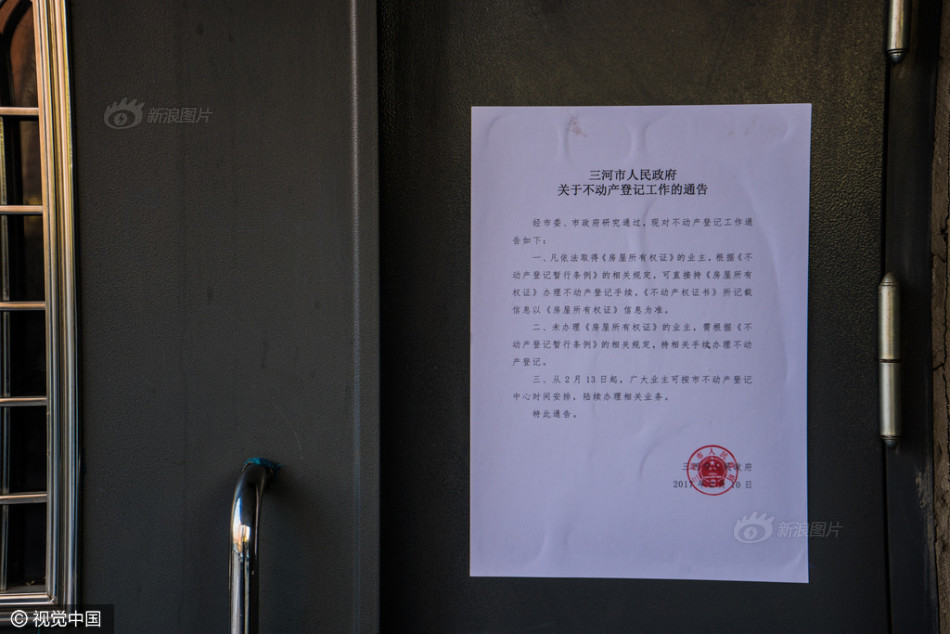 新浪图片
三河市人民政府
关于不动产登记工作的通告
经市委、市政府研究通过，现对不动产登记工作通
告如下：
一、凡依法取得《房屋所有权证》的业主，根据《不
动产登记暂行条例》的相关规定，可直接持《房屋所有
权证》办理不动产登记手续。《不动产权证书》所记载
信息以《房屋所有权证》信息为准。
二、未办理《房屋所有权证》的业主，需根据《不
动产登记暂行条例》的相关规定，持相关手续办理不动
产登记。
三、从2月13日起，广大业主可按市不动产登记
中心时间安排，陆续办理相关业务。
特此通告。
三河市人民政府
2017年2月10日
新浪图片
© 视觉中国